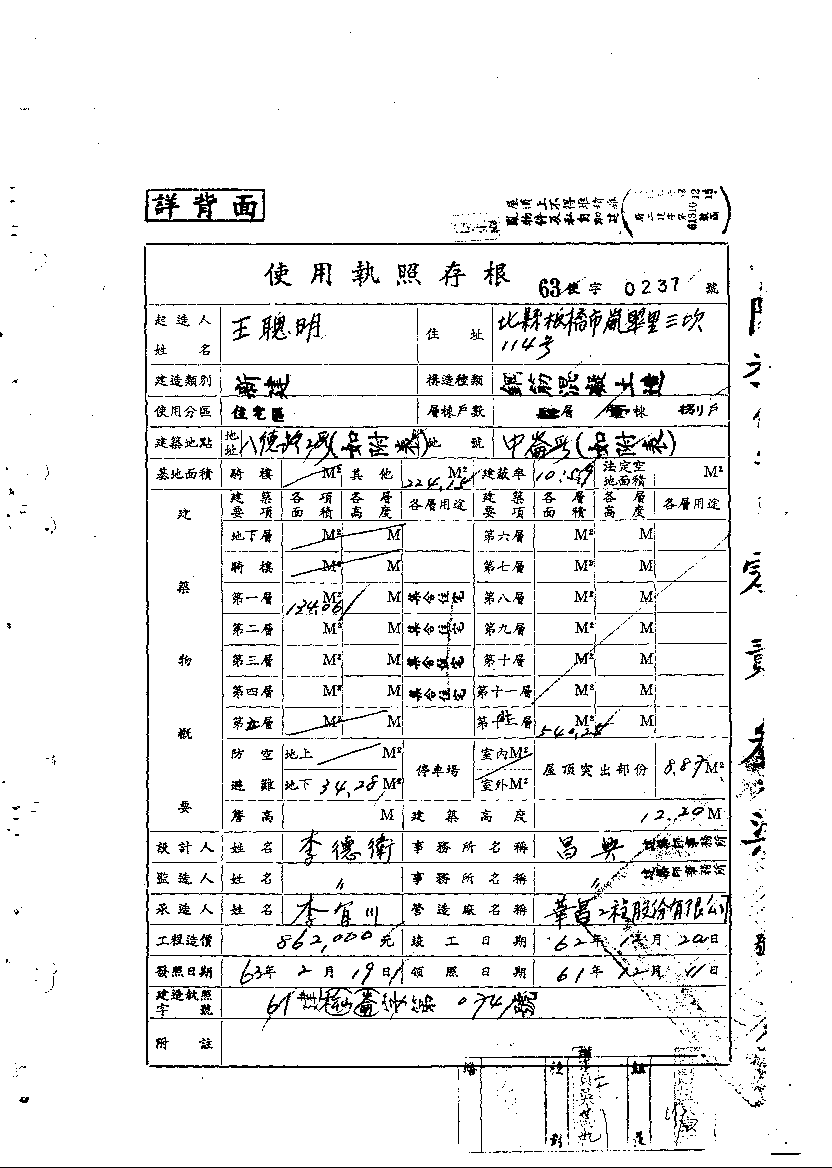 詳背面
屋頂上不得堆積雜物
使用執照存根 63使字0237號
起造人姓名 王聰明 住址 北縣板橋市嵐翠里三坎114号
建造類別 新建 構造種類 鋼筋混凝土造
使用分區 住宅區 層棟戶數 層 棟 捌戶
建築地點 地址 八德路2段(如附表) 地號 中崙段(如附表)
基地面積 騎樓 M² 其他 224.15 M² 建蔽率 法定空地面積 M²
建築物概要 建築要項 各項面積 各層高度 各層用途 建築要項 各層面積 各層高度 各層用途
地下層 M² M 第六層 M² M
騎樓 M² M 第七層 M² M
第一層 134.06 M² M 集合住宅 第八層 M² M
第二層 M² M 集合住宅 第九層 M² M
第三層 M² M 集合住宅 第十層 M² M
第四層 M² M 集合住宅 第十一層 M² M
第五層 M² M 第 層 540.28 M² M
防空避難 地上 M² 停車場 室內M² 屋頂突出部份 8.87 M²
地下 34.28 M² 室外M²
簷高 M 建築高度 12.20 M
設計人 姓名 李德衛 事務所名稱 昌興 建築師事務所
監造人 姓名 〃 事務所名稱 〃 建築師事務所
承造人 姓名 李宜川 營造廠名稱 華昌工程股份有限公司
工程造價 862,000元 竣工日期 62年1 月20日
發照日期 63年2月19日 領照日期 61年12月11日
建造執照字號 61建 崙 字第074號
附註